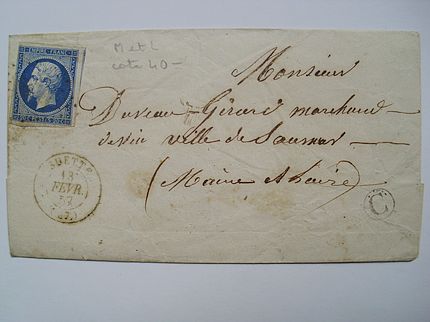 EMPIRE FRANC
20 C POSTES 20 C
M et L
cote 40-
Monsieur
Duveau-Girard marchand
de vin ville de Saumur
(Maine & Loire)
SUETTE
13
FEVR.
57
C